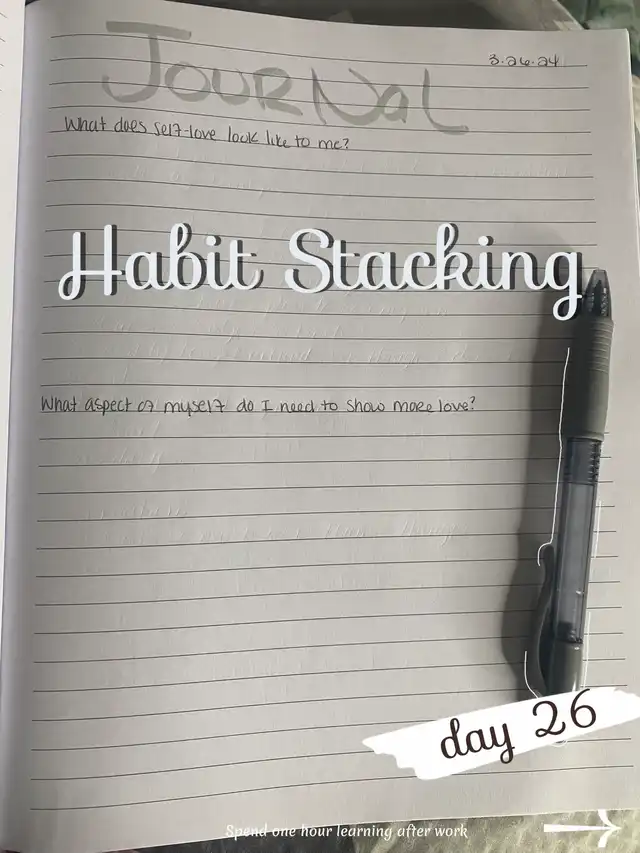 3.26.24
JOURNaL
What does self-love look like to me?
Habit Stacking
What aspect of myself do I need to show more love?
day 26
Spend one hour learning after work